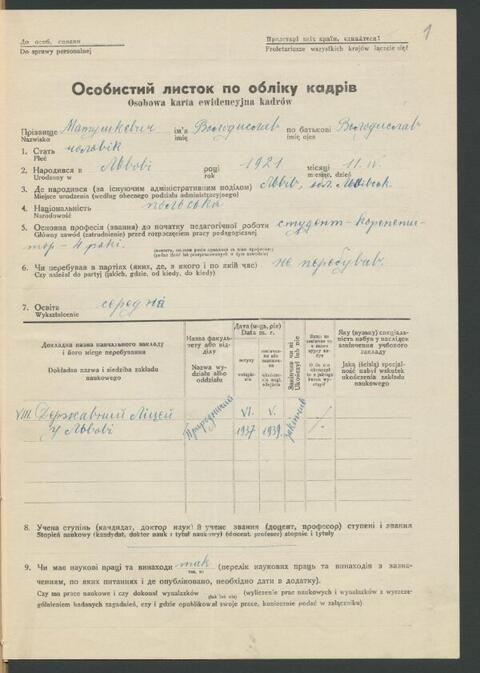 До особ. справи
Do sprawy personalnej
Пролетарі всіх країн, єднайтеся!
Proletariusze wszystkich krajów łączcie się!
1
Особистий листок по обліку кадрів
Osobowa karta ewidencyjna kadrów
Прізвище Матушкевич ім'я Володислав по батькові Володислав
Nazwisko imię imię ojca
1. Стать чоловік
Płeć
2. Народився в Львові році 1921 місяці 11.IV.
Urodzony w rok miesiąc, dzień
3. Де народився (за існуючим адміністративним поділом) Львів, обл. Львівськ.
Miejsce urodzenia (według obecnego podziału administracyjnego)
4. Національність польська
Narodowość
5. Основна професія (звання) до початку педагогічної роботи студент-корепети-
Główny zawód (zatrudnienie) przed rozpoczęciem pracy pedagogicznej
тор - 4 рокі.
6. Чи перебував в партіях (яких, де, з якого і по який час) не перебував
Czy należał do partyj (jakich, gdzie, od kiedy, do kiedy)
7. Освіта середня
Wykształcenie
Докладна назва навчального закладу
і його місце перебування
Dokładna nazwa i siedziba zakładu
naukowego
Назва факуль-
тету або від-
ділу
Nazwa wy-
działu albo
oddziału
Дата (м-ць, рік)
Data m. r.
вступу
Закінчив чи ні
Ukończył lub nie
Яку (вузьку) спеціаль-
ність набув у наслідок
закінчення учбового
закладу
Jaką (ścisłą) specjal-
ność nabył wskutek
ukończenia zakładu
naukowego
VIII Державний Ліцей
у Львові
Природничий
VI. 1937
V. 1939
закінчив
8. Учена ступінь (кандидат, доктор наук) й учене звання (доцент, професор) ступені і звання
Stopień naukowy (kandydat, doktor nauk i tytuł naukowy) (docent, profesor) stopnie i tytuły
9. Чи має наукові праці та винаходи так (перелік наукових праць та винаходів з зазна-
ченням, по яких питаннях і де опубліковано, необхідно дати в додатку).
Czy ma prace naukowe i czy dokonał wynalazków (tak lub nie) (wyliczenie prac naukowych i wynalazków z wyszcze-
gólnieniem badanych zagadnień, czy i gdzie opublikował swoje prace, koniecznie podać w załączniku)